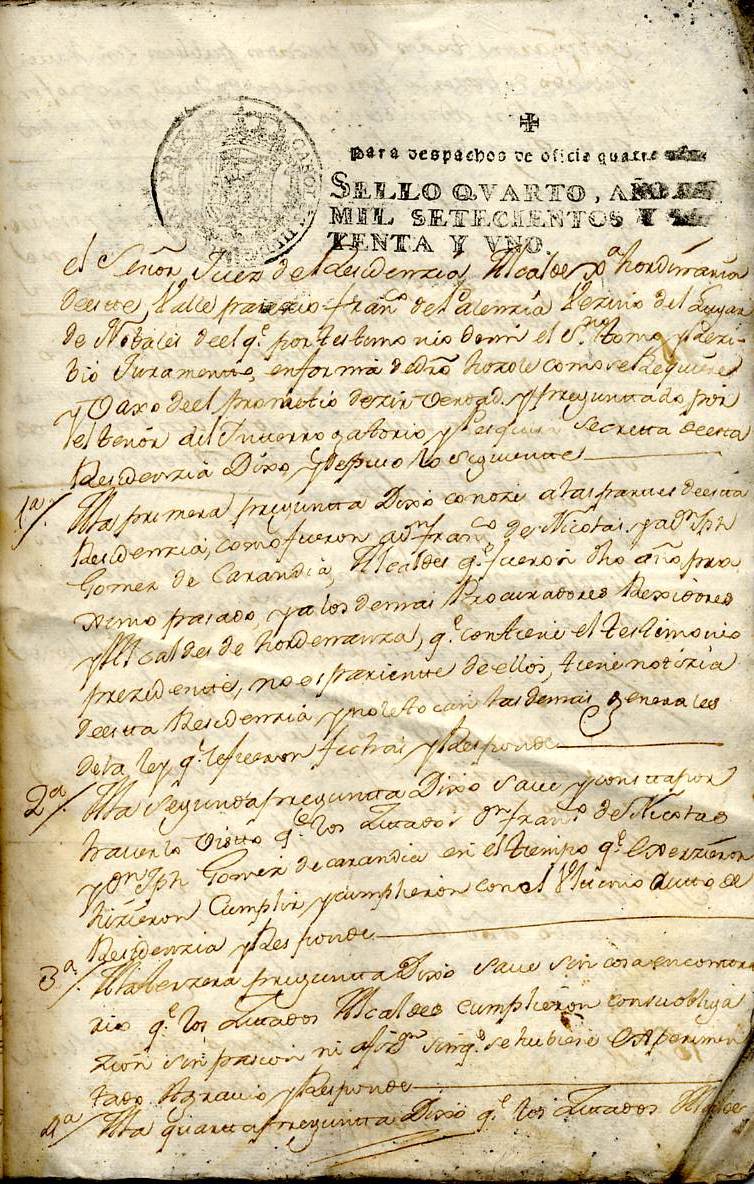 para despachos de oficio quatro
SELLO QVARTO, AÑO
MIL SETECIENTOS Y
TENTA Y VNO.
el Señor Juez de Residenzia, Alcalde hordinario
deeste Valle parezio franco de Palenzia Vezino del Lugar
de Notales de el qe. por testimonio de mi el Sno. tomo y Rezi-
vio Juramento, en forma de dro. horole como se Requiere
y Vaxo de el prometio dezir Verdad, y preguntado por
el tenor del Interrogatorio y Pesquisa Secretta de esta
Residenzia Dixo, y depuso lo siguiente
1a. A la primera pregunta Dixo conoze a las partes deesta
Residenzia, como fueron a dn. franco. de Nicotas y a dn. Jph
Gomez de Carandia, Alcaldes qe. fueron dho año pro
ximo pasado, y a los demas Procuradores Rexidores
y Alcaldes de hordenanza, qe. contiene el testimonio
prezedente, no es pariente de ellos, tiene notizia
deesta Residenzia y no le tocan las demas Generales
de la ley qe. le fueron fechas y Responde
2a. A la segunda pregunta Dixo save y consta por
haverlo Visto qe. los Zitados dn. franco. de Nicotas
y dn. Jph Gomez de carandia en el tiempo qe. Exerzieron
hizieron Cumplir y cumplieron con el Vltimo Autto de
Residenzia y Responde
3a. A la terzera pregunta Dixo save sin cosa en contra
rio qe. los Zitados Alcaldes cumplieron con su obliga
zion sin pasion ni afizon. sin qe. se hubiese Experimen
tado Agravio y Responde
4a A la quarta pregunta Dixo qe. los Zitados Alcaldes